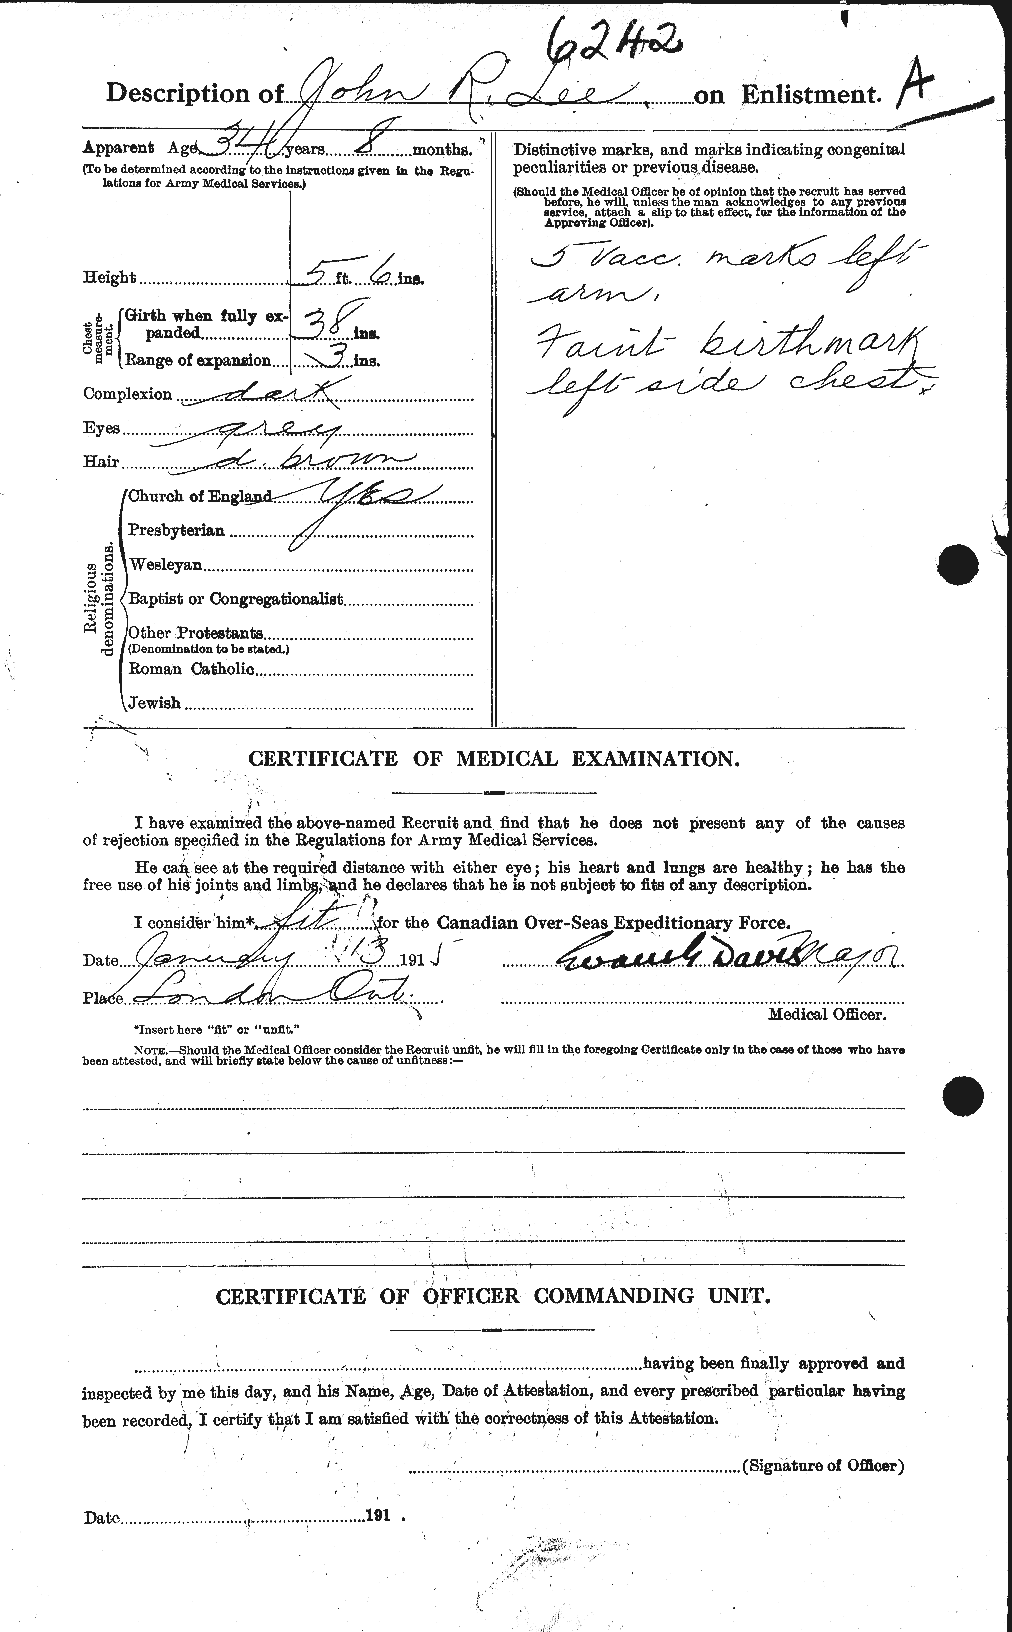 6242
Description of John R. Lee, on Enlistment. A
Apparent Age 34 years 8 months.
(To be determined according to the instructions given in the Regu-
lations for Army Medical Services.)
Height 5 ft. 6 ins.
Chest measure-ment.
Girth when fully ex-
panded 38 ins.
Range of expansion 3 ins.
Complexion dark
Eyes grey
Hair d. brown
Religious denominations.
Church of England Yes
Presbyterian
Wesleyan
Baptist or Congregationalist
Other Protestants
(Denomination to be stated.)
Roman Catholic
Jewish
Distinctive marks, and marks indicating congenital
peculiarities or previous disease.
(Should the Medical Officer be of opinion that the recruit has served
before, he will, unless the man acknowledges to any previous
service, attach a slip to that effect, for the information of the
Approving Officer).
5 Vacc. marks left
arm.
Faint birthmark
left side chest.
CERTIFICATE OF MEDICAL EXAMINATION.
I have examined the above-named Recruit and find that he does not present any of the causes
of rejection specified in the Regulations for Army Medical Services.
He can see at the required distance with either eye; his heart and lungs are healthy; he has the
free use of his joints and limbs, and he declares that he is not subject to fits of any description.
I consider him* fit for the Canadian Over-Seas Expeditionary Force.
Date January 13 1915 Davis Major
Place London Ont.
Medical Officer.
*Insert here "fit" or "unfit."
NOTE.—Should the Medical Officer consider the Recruit unfit, he will fill in the foregoing Certificate only in the case of those who have
been attested, and will briefly state below the cause of unfitness:—
CERTIFICATE OF OFFICER COMMANDING UNIT.
having been finally approved and
inspected by me this day, and his Name, Age, Date of Attestation, and every prescribed particular having
been recorded, I certify that I am satisfied with the correctness of this Attestation.
(Signature of Officer)
Date 191 .